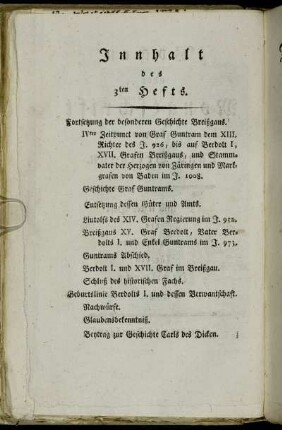 Innhalt
des
3ten Hefts.
Fortsetzung der besonderen Geschichte Breißgaus.
IVter Zeitpunct von Graf Guntram dem XIII.
Richter des J. 926, bis auf Berdolt I,
XVII. Grafen Breißgaus; und Stamm-
vater der Herzogen von Zäringen und Mark-
grafen von Baden im J. 1008.
Geschichte Graf Guntrams.
Entsetzung dessen Güter und Amts.
Liutolfs des XIV. Grafen Regierung im J. 952.
Breißgaus XV. Graf Berdolt, Vater Ber-
dolts I. und Enkel Guntrams im J. 973.
Guntrams Abschied.
Berdolt I. und XVII. Graf im Breißgau.
Schluß des historischen Fachs.
Geburtslinie Berdolts I. und dessen Verwantschaft.
Nachwürfe.
Glaubensbekenntniß.
Beytrag zur Geschichte Carls des Dicken.